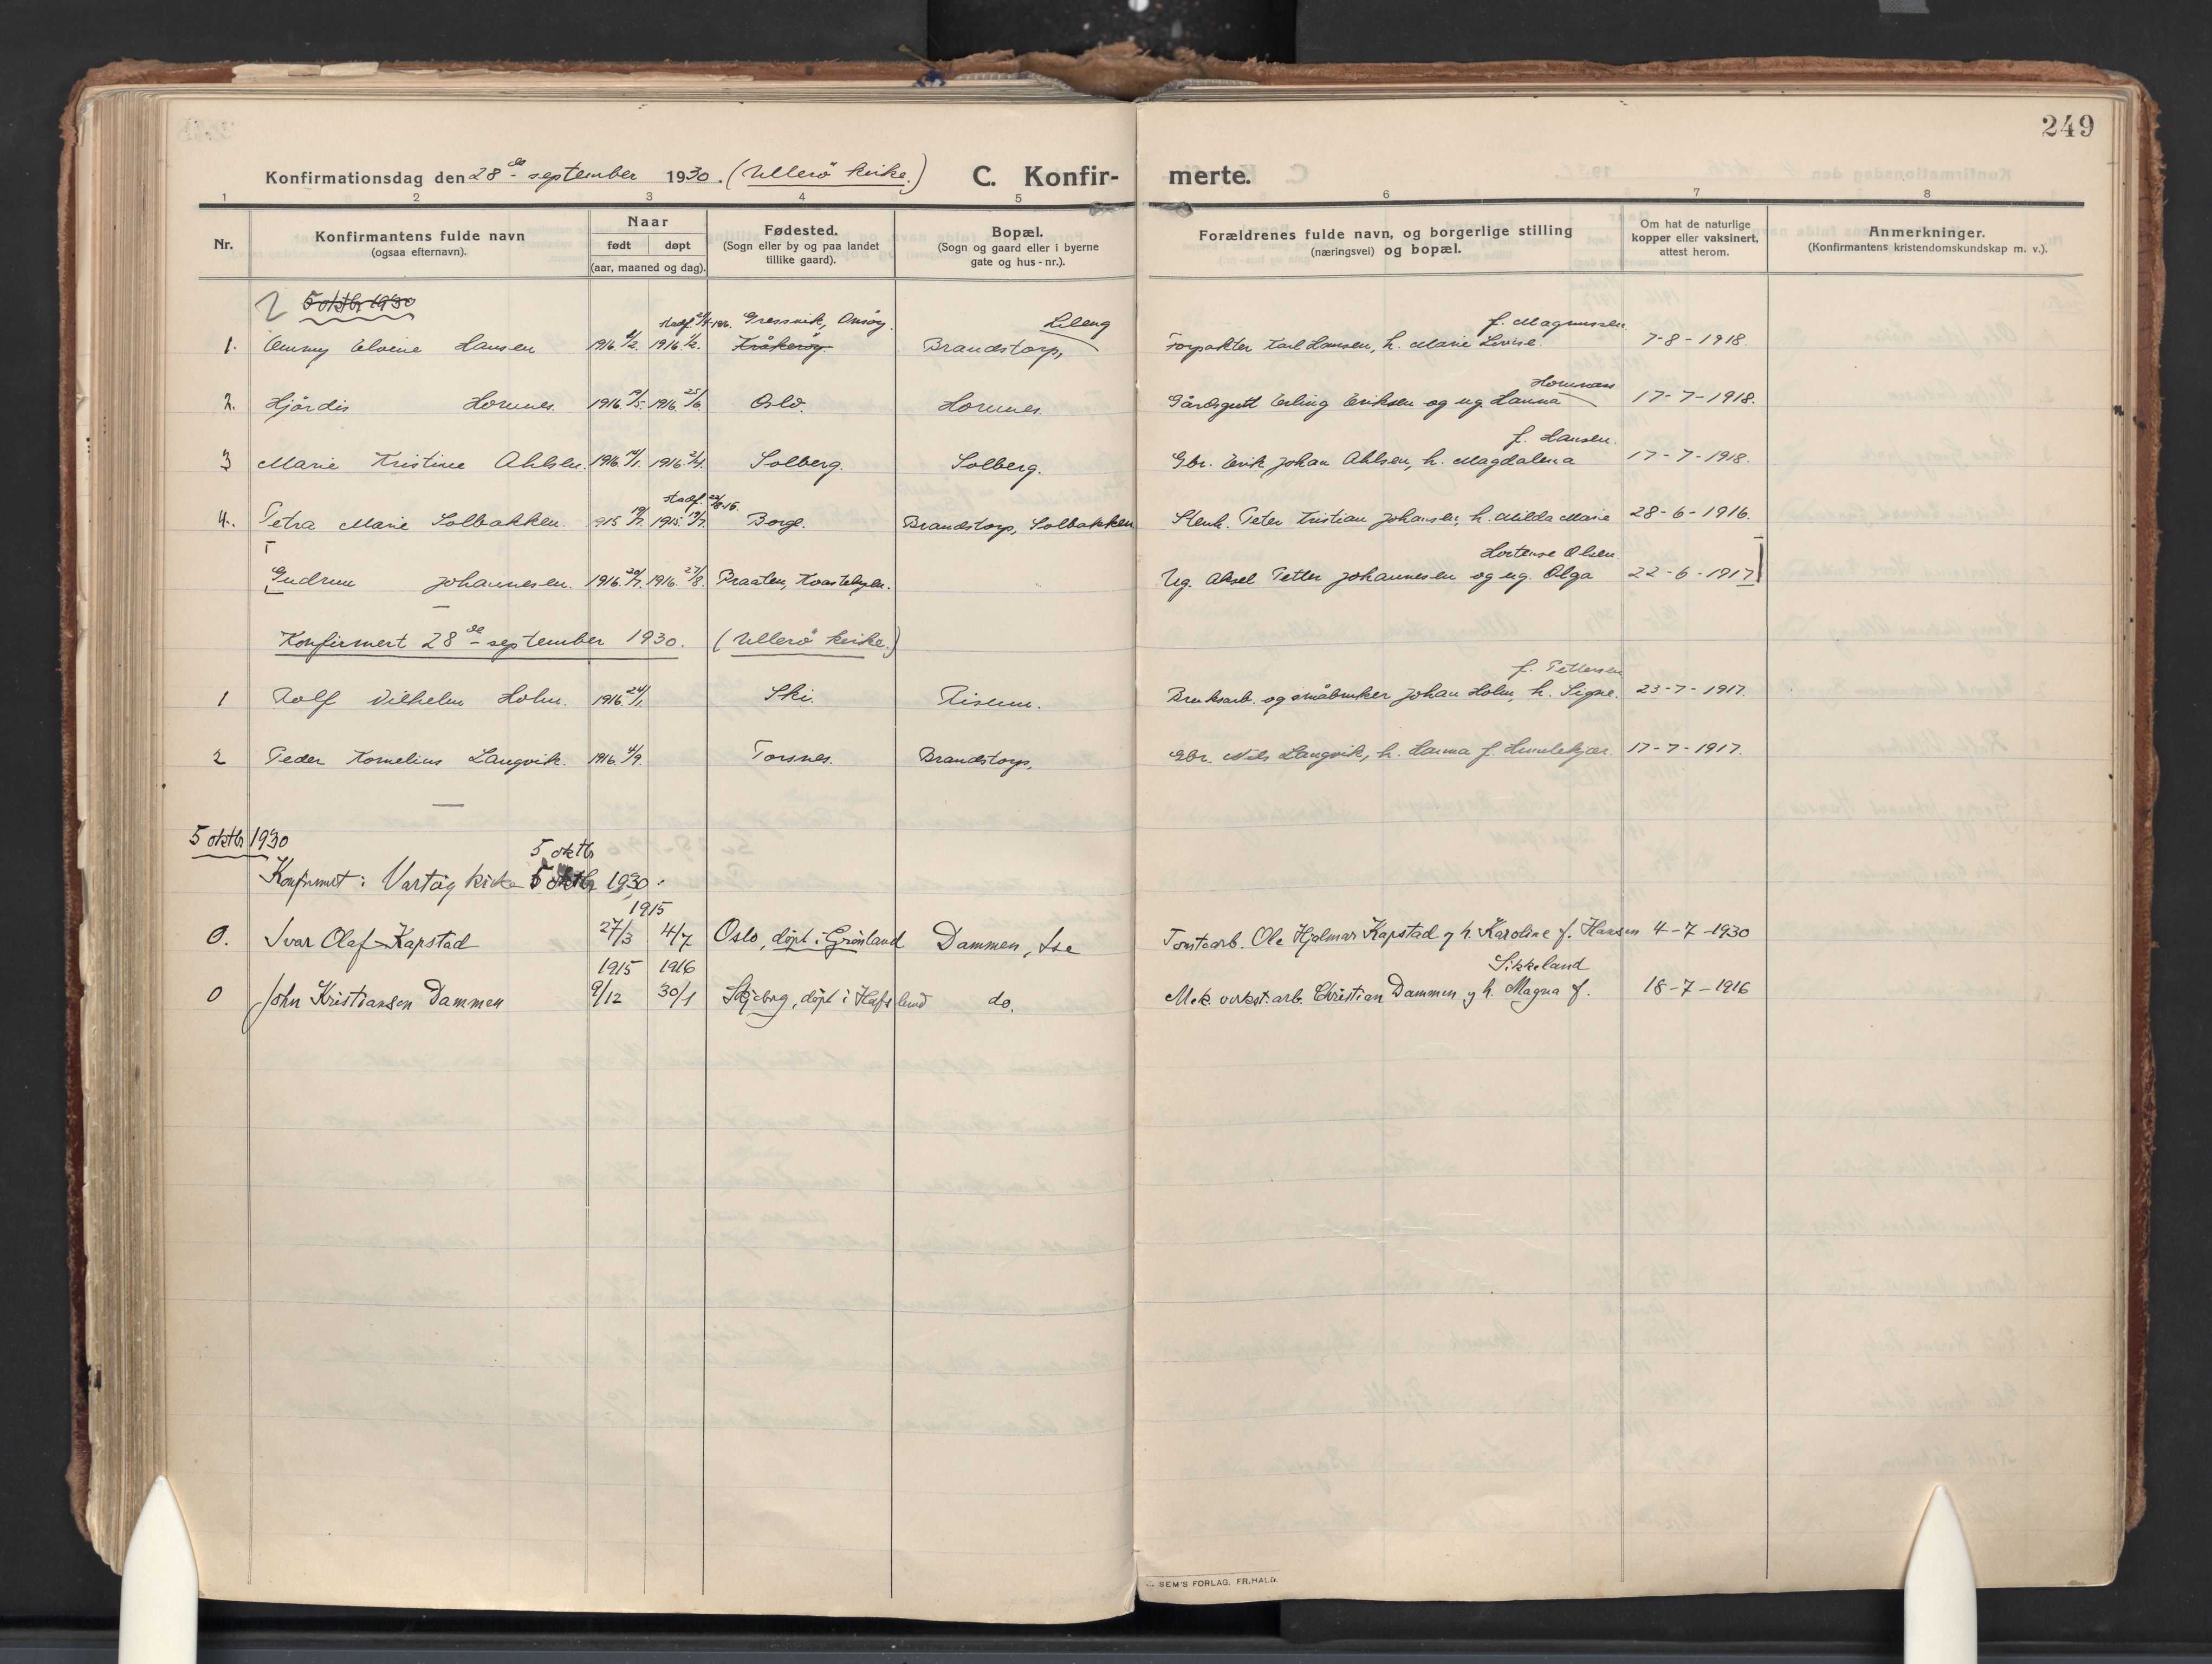 249
Konfirmationsdag den 28de september 1930. (Ullerö kirke.) C. Konfir- merte.
1 2 3 4 5 6 7 8
Nr.
Konfirmantens fulde navn
(ogsaa efternavn).
Naar
født døpt
(aar, maaned og dag).
Fødested.
(Sogn eller by og paa landet
tillike gaard).
Bopæl.
(Sogn og gaard eller i byerne
gate og hus-nr.).
Forældrenes fulde navn, og borgerlige stilling
(næringsvei) og bopæl.
Om hat de naturlige
kopper eller vaksinert,
attest herom.
Anmerkninger.
(Konfirmantens kristendomskundskap m. v.).
5 oktbr 1930
Gressvik, Onsøy. Lileng f. Magnussen
1. Emmy Elvine Hansen 1916 1916 Kråkerøy Brandstorp, Forpakter Karl Hansen, h. Marie Lovise. 7-8-1918.
Hornnes
2. Hjördis Hornnes. 1916 19/5. 1916. 25/6. Oslo. Hornnes. Gårdsgutt Erling Eriksen og ug. Hanna 17-7-1918.
f. Hansen.
3 Marie Kristine Ahlsen. 1916 1916 2/4. Solberg. Solberg. Gbr. Erik Johan Ahlsen, h. Magdalena 17-7-1918.
stadf.
4. Petra Marie Solbakken. 1915 19/7. 1915. 19/7. Borge. Brandstorp, Solbakken Stenh. Peter Kristian Johansen, h. Milda Marie 28-6-1916.
Hortense Olsen.
Gudrun Johannesen. 1916. 20/7. 1916. 27/8. Braaten, Ug. Aksel Petter Johannesen og ug. Olga 22-6-1917
Konfirmert 28de september 1930. (Ullerö kirke.)
f. Pettersen
1 Rolf Vilhelm Holm. 1916. 24/1. Ski. Risum. Bruksarb. og småbruker Johan Holm, h. Signe. 23-7-1917.
2 Peder Kornelius Langvik. 1916 4/9. Torsnes. Brandstorp. Gbr. Nils Langvik, h. Hanna f. Humlekjær. 17-7-1917.
5 oktbr 1930
5 oktb
Konfirmert i Varteig kirke 5 oktbr 1930.
1915
0. Ivar Olaf Kapstad 27/3 4/7 Oslo, døpt i Grønland Dammen, Ise Tomtearb. Ole Hjalmar Kapstad og h. Karoline f. Hansen 4-7-1930
1915 1916 Sikkeland
0 John Kristiansen Dammen 9/12 30/1 Skjeberg, døpt i Hafslund do. Mek. verkst.arb. Christian Dammen og h. Magna f. 18-7-1916
SEM'S FORLAG. FR.HALD.